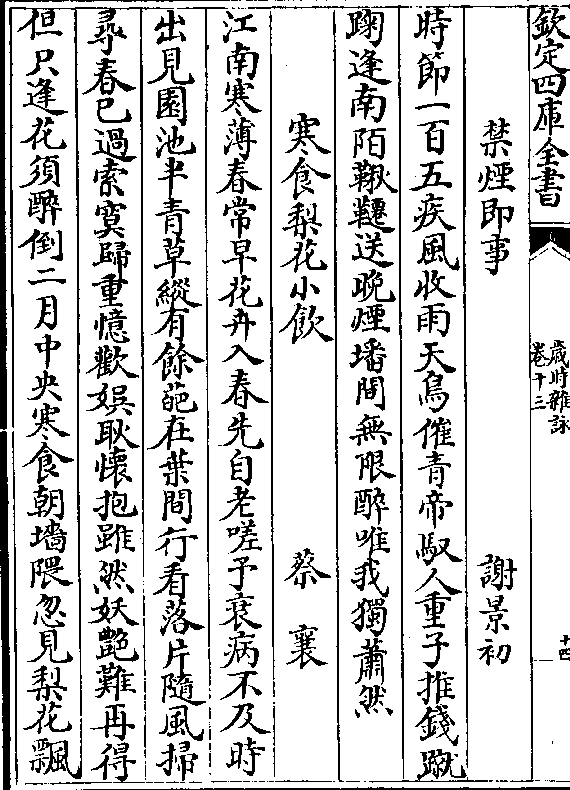 欽定四庫全書
歲時雜詠
卷十三
十四
禁煙即事
謝景初
時節一百五疾風收雨天鳥催青帝馭人重子推錢蹴
踘逢南陌鞦韆送晚煙墦間無限醉唯我獨蕭然
寒食梨花小飲
蔡襄
江南寒薄春常早花卉入春先自老嗟予衰病不及時
出見園池半青草縱有餘葩在葉間行看落片隨風掃
尋春已過索寞歸重憶歡娯耿懷抱雖然妖艷難再得
但只逢花須醉倒二月中央寒食朝墻隈忽見梨花飄